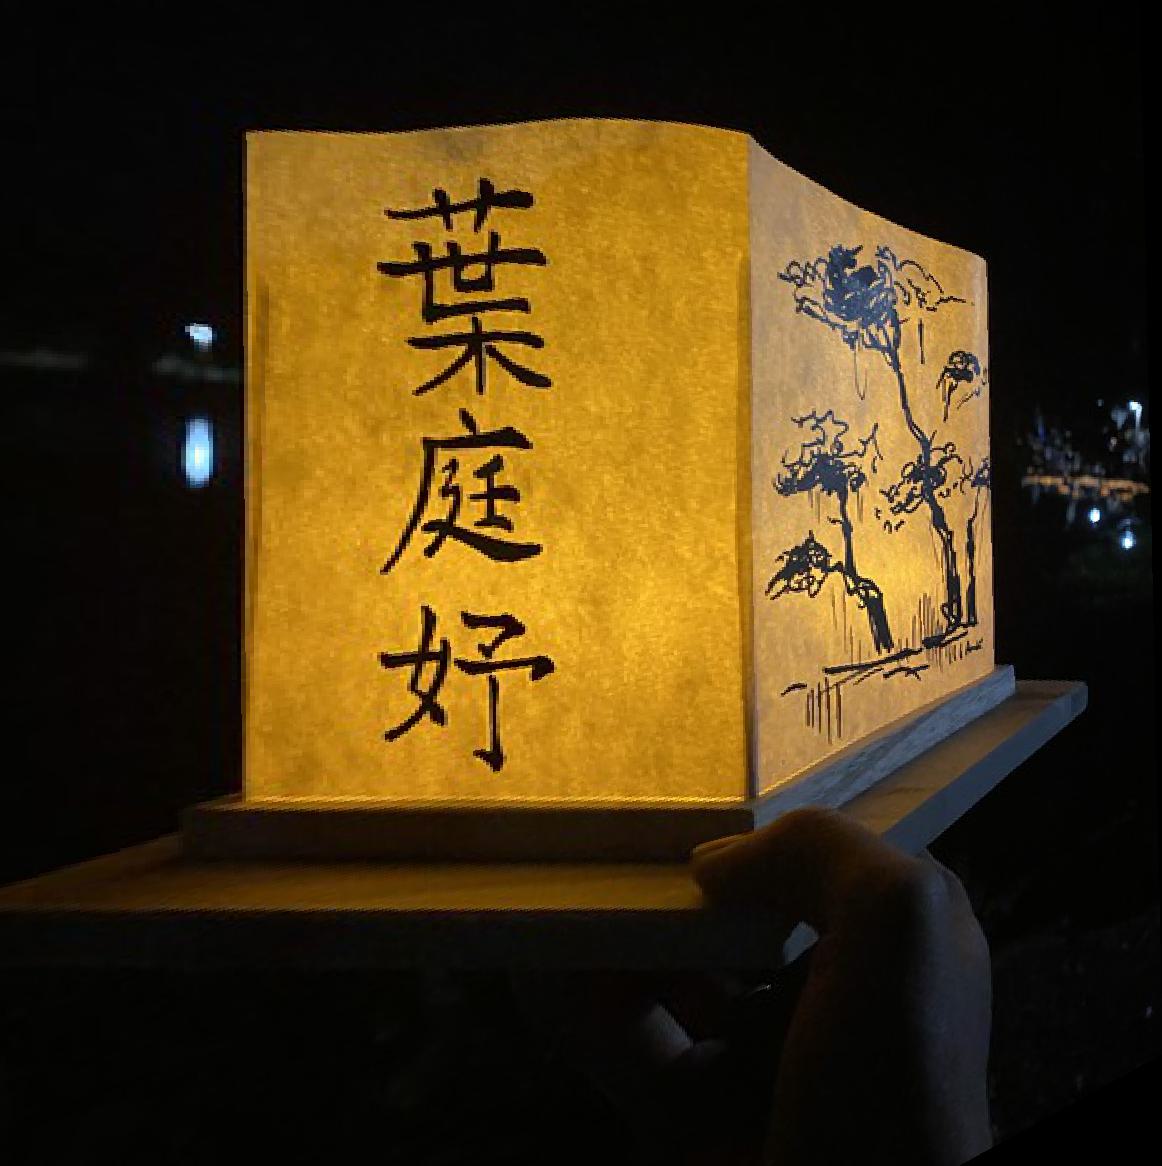 葉庭妤